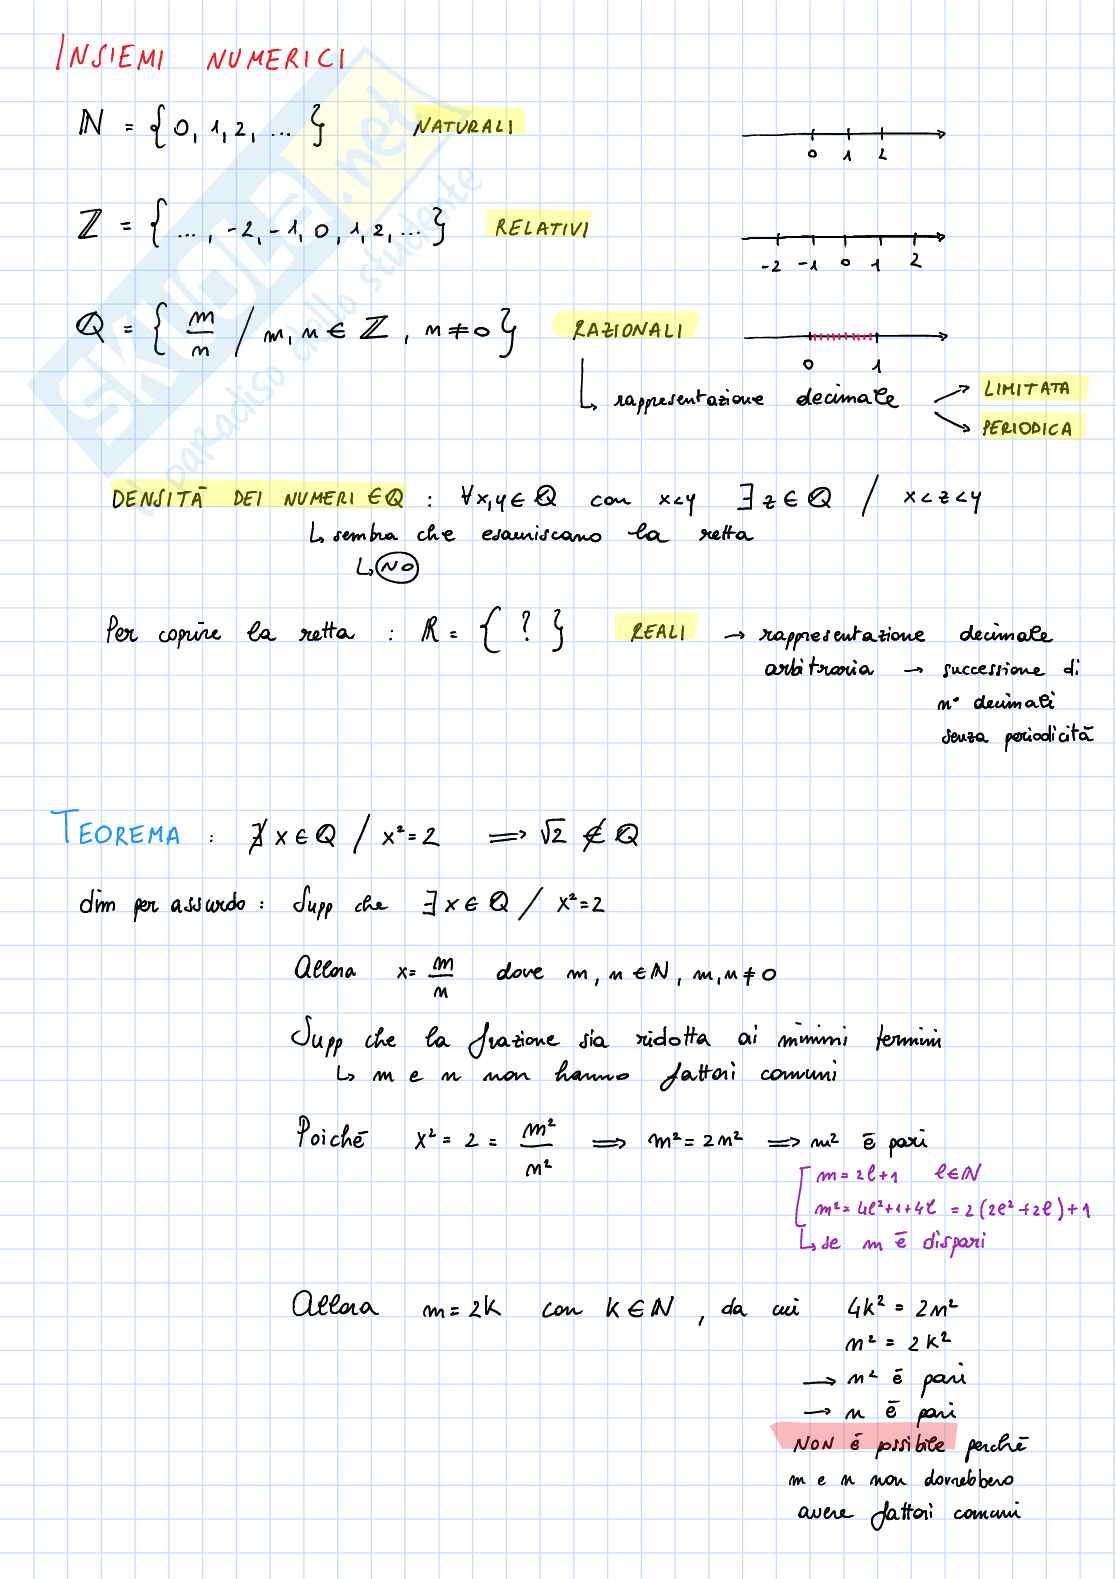 INSIEMI NUMERICI
ℕ = {0, 1, 2, ...} NATURALI
0 1 2
ℤ = {..., -2, -1, 0, 1, 2, ...} RELATIVI
-2 -1 0 1 2
ℚ = {m/n / m, n ∈ ℤ, n ≠ 0} RAZIONALI
0 1
↳ rappresentazione decimale → LIMITATA
→ PERIODICA
DENSITÀ DEI NUMERI ∈ ℚ : ∀x,y ∈ ℚ con x<y ∃ z ∈ ℚ / x<z<y
↳ sembra che esauriscano la retta
↳ NO
Per coprire la retta : ℝ = { ? } REALI → rappresentazione decimale
arbitraria → successione di
n° decimali
senza periodicità
TEOREMA : ∄ x ∈ ℚ / x² = 2 ⟹ √2 ∉ ℚ
dim per assurdo : Supp che ∃ x ∈ ℚ / x² = 2
Allora x = m/n dove m, n ∈ ℕ, m, n ≠ 0
Supp che la frazione sia ridotta ai minimi termini
↳ m e n non hanno fattori comuni
Poiché x² = 2 = m²/n² ⟹ m² = 2n² ⟹ m² è pari
m = 2ℓ+1 ℓ ∈ ℕ
m² = 4ℓ²+1+4ℓ = 2(2ℓ²+2ℓ)+1
↳ se m è dispari
Allora m = 2k con k ∈ ℕ, da cui 4k² = 2n²
n² = 2k²
→ n² è pari
→ n è pari
NON è possibile perché
m e n non dovrebbero
avere fattori comuni
SKUOLA.net
il paradiso dello studente